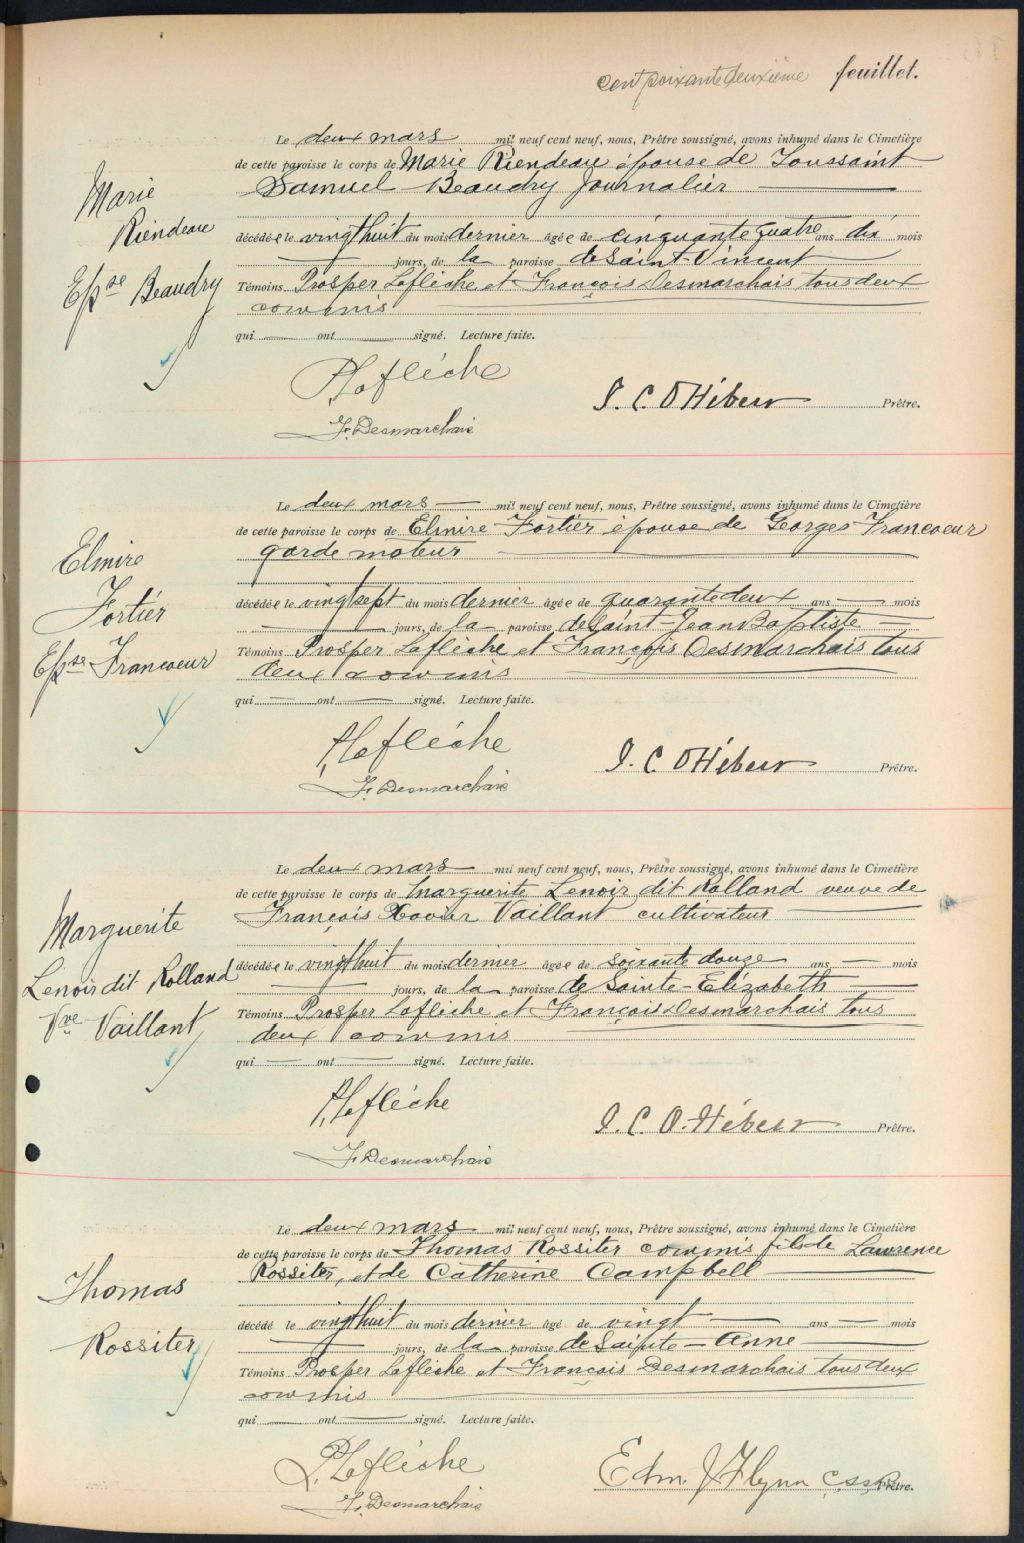 cent soixante deuxième feuillet.
Le deux mars mil neuf cent neuf, nous, Prêtre soussigné, avons inhumé dans le Cimetière
de cette paroisse le corps de Marie Riendeau épouse de Toussaint
Samuel Beaudry Journalier
Marie
Riendeau
Epse Beaudry
décédée le vingt huit du mois dernier âgée de cinquante quatre ans dix mois
jours, de la paroisse de Saint Vincent
Témoins Prosper Laflèche et François Desmarchais tous deux
commis
qui ont signé. Lecture faite.
P. Laflèche
J. C. O Hébert Prêtre.
F. Desmarchais
Le deux mars mil neuf cent neuf, nous, Prêtre soussigné, avons inhumé dans le Cimetière
de cette paroisse le corps de Elmire Fortier épouse de Georges Francoeur
garde moteur
Elmire
Fortier
Epse Francoeur
décédée le vingt sept du mois dernier âgée de quarante deux ans mois
jours, de la paroisse de Saint-Jean Baptiste
Témoins Prosper Laflèche et François Desmarchais tous
deux commis
qui ont signé. Lecture faite.
P. Laflèche
J. C. O Hébert Prêtre.
F. Desmarchais
Le deux mars mil neuf cent neuf, nous, Prêtre soussigné, avons inhumé dans le Cimetière
de cette paroisse le corps de Marguerite Lenoir dit Rolland veuve de
François Xavier Vaillant cultivateur
Marguerite
Lenoir dit Rolland
Vve Vaillant
décédée le vingt huit du mois dernier âgée de soixante douze ans mois
jours, de la paroisse de Sainte-Elizabeth
Témoins Prosper Laflèche et François Desmarchais tous
deux commis
qui ont signé. Lecture faite.
P. Laflèche
J. C. O. Hébert Prêtre.
F. Desmarchais
Le deux mars mil neuf cent neuf, nous, Prêtre soussigné, avons inhumé dans le Cimetière
de cette paroisse le corps de Thomas Rossiter commis fils de Lawrence
Rossiter, et de Catherine Campbell
Thomas
Rossiter
décédé le vingt huit du mois dernier âgé de vingt ans mois
jours, de la paroisse de Sainte-Anne
Témoins Prosper Laflèche et François Desmarchais tous deux
commis
qui ont signé. Lecture faite.
P. Laflèche
Edm J Flynn C.SS.R. Prêtre.
F. Desmarchais